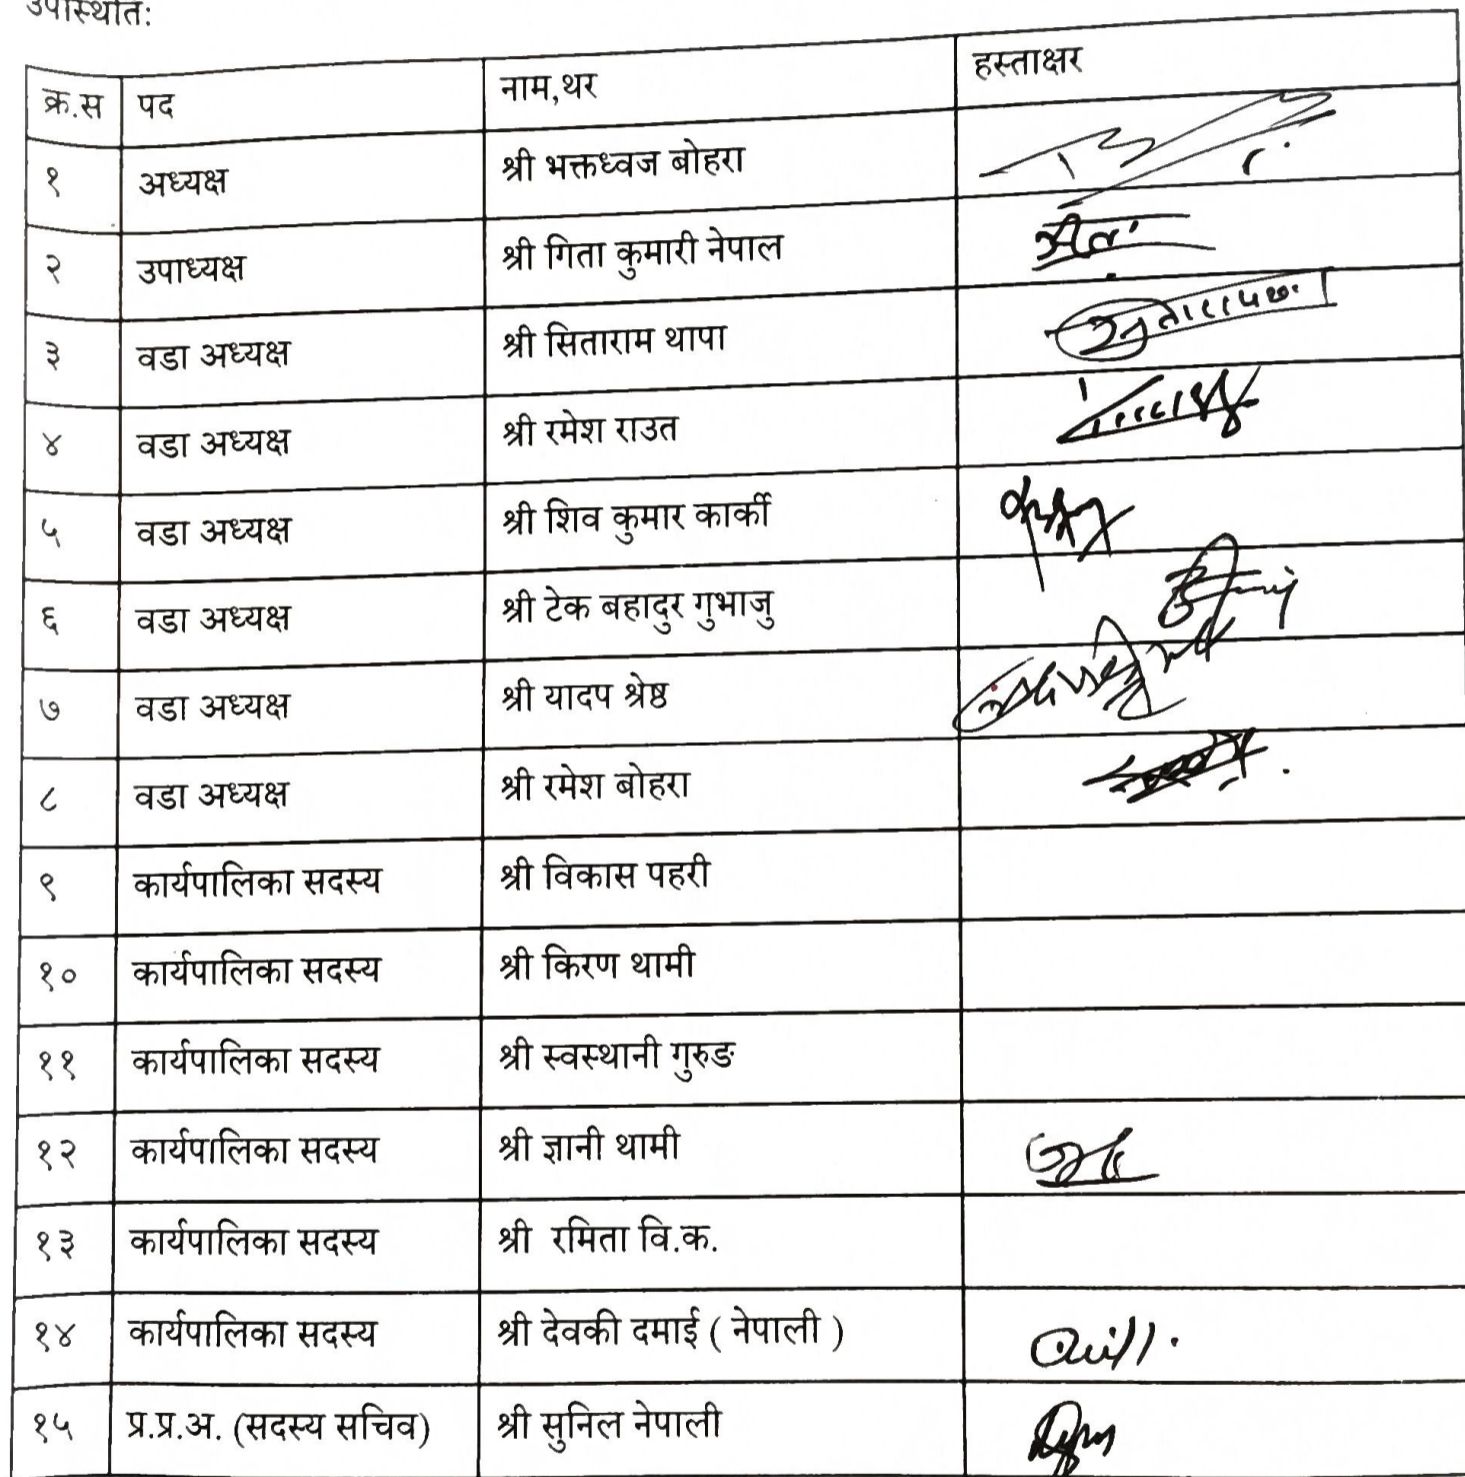 उपस्थिति:
क्र.स पद नाम,थर हस्ताक्षर
१ अध्यक्ष श्री भक्तध्वज बोहरा
२ उपाध्यक्ष श्री गिता कुमारी नेपाल
३ वडा अध्यक्ष श्री सिताराम थापा
४ वडा अध्यक्ष श्री रमेश राउत
५ वडा अध्यक्ष श्री शिव कुमार कार्की
६ वडा अध्यक्ष श्री टेक बहादुर गुभाजु
७ वडा अध्यक्ष श्री यादप श्रेष्ठ
८ वडा अध्यक्ष श्री रमेश बोहरा
९ कार्यपालिका सदस्य श्री विकास पहरी
१० कार्यपालिका सदस्य श्री किरण थामी
११ कार्यपालिका सदस्य श्री स्वस्थानी गुरुङ
१२ कार्यपालिका सदस्य श्री ज्ञानी थामी
१३ कार्यपालिका सदस्य श्री रमिता वि.क.
१४ कार्यपालिका सदस्य श्री देवकी दमाई ( नेपाली )
१५ प्र.प्र.अ. (सदस्य सचिव) श्री सुनिल नेपाली